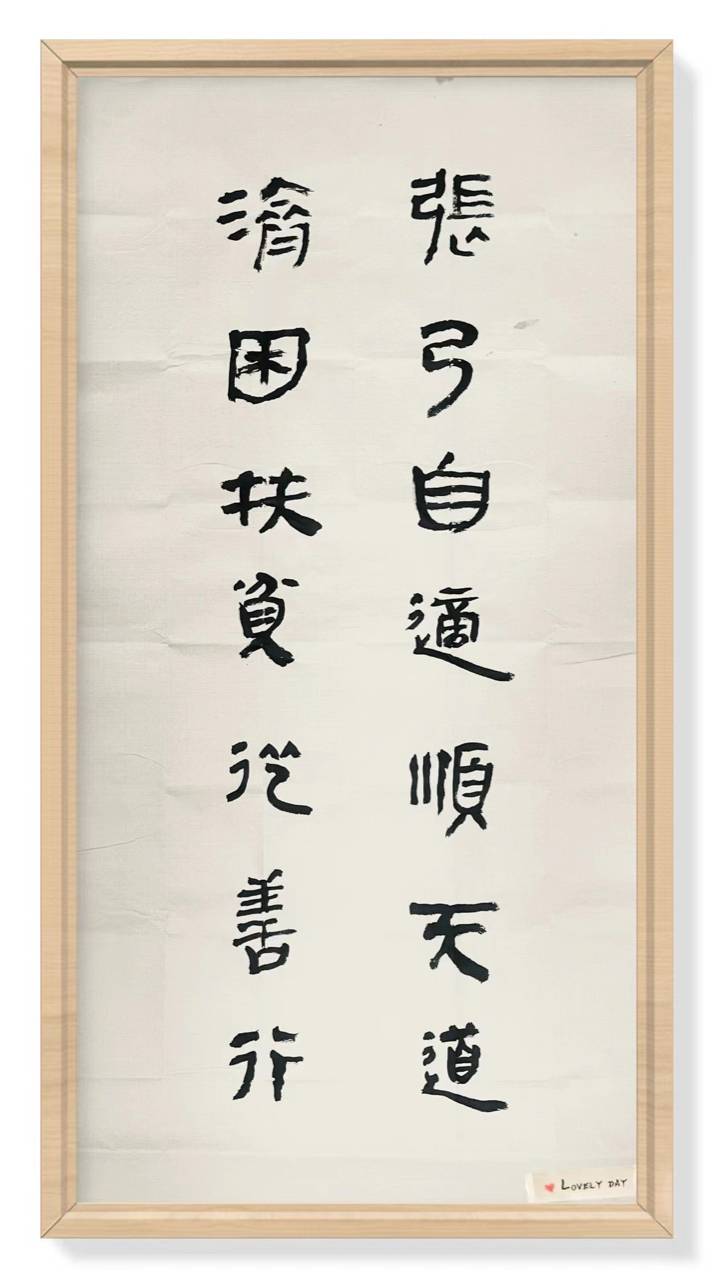 張弓自適順天道
濟困扶貧從善行
LOVELY DAY